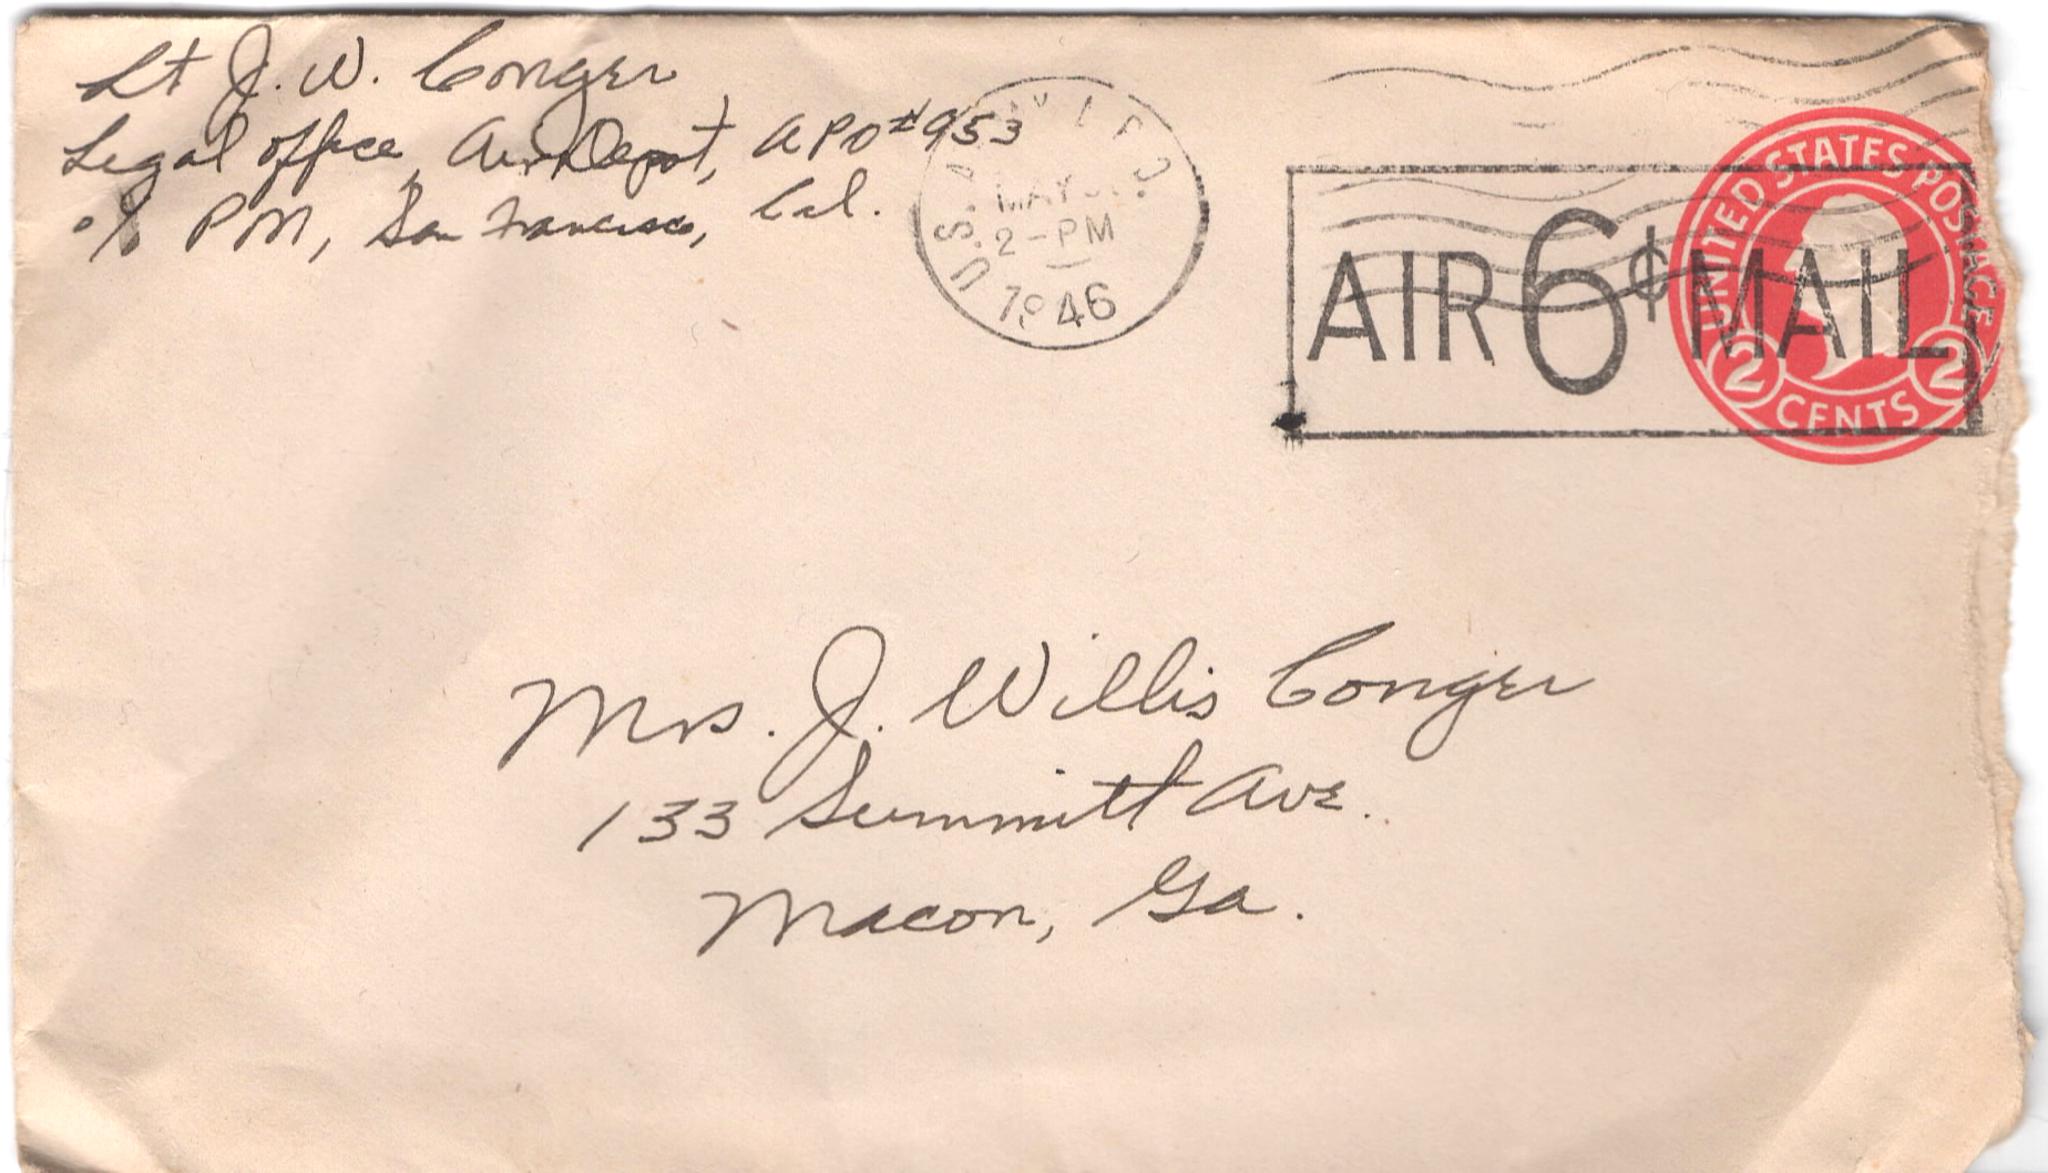 Lt J. W. Conger
Legal office, Air Depot, APO #953
c/o PM, San Francisco, Cal.
U.S.
MAY
2-PM
1946
AIR 6¢ MAIL
UNITED STATES POSTAGE
2 CENTS 2
Mrs. J. Willis Conger
133 Summitt Ave.
Macon, Ga.